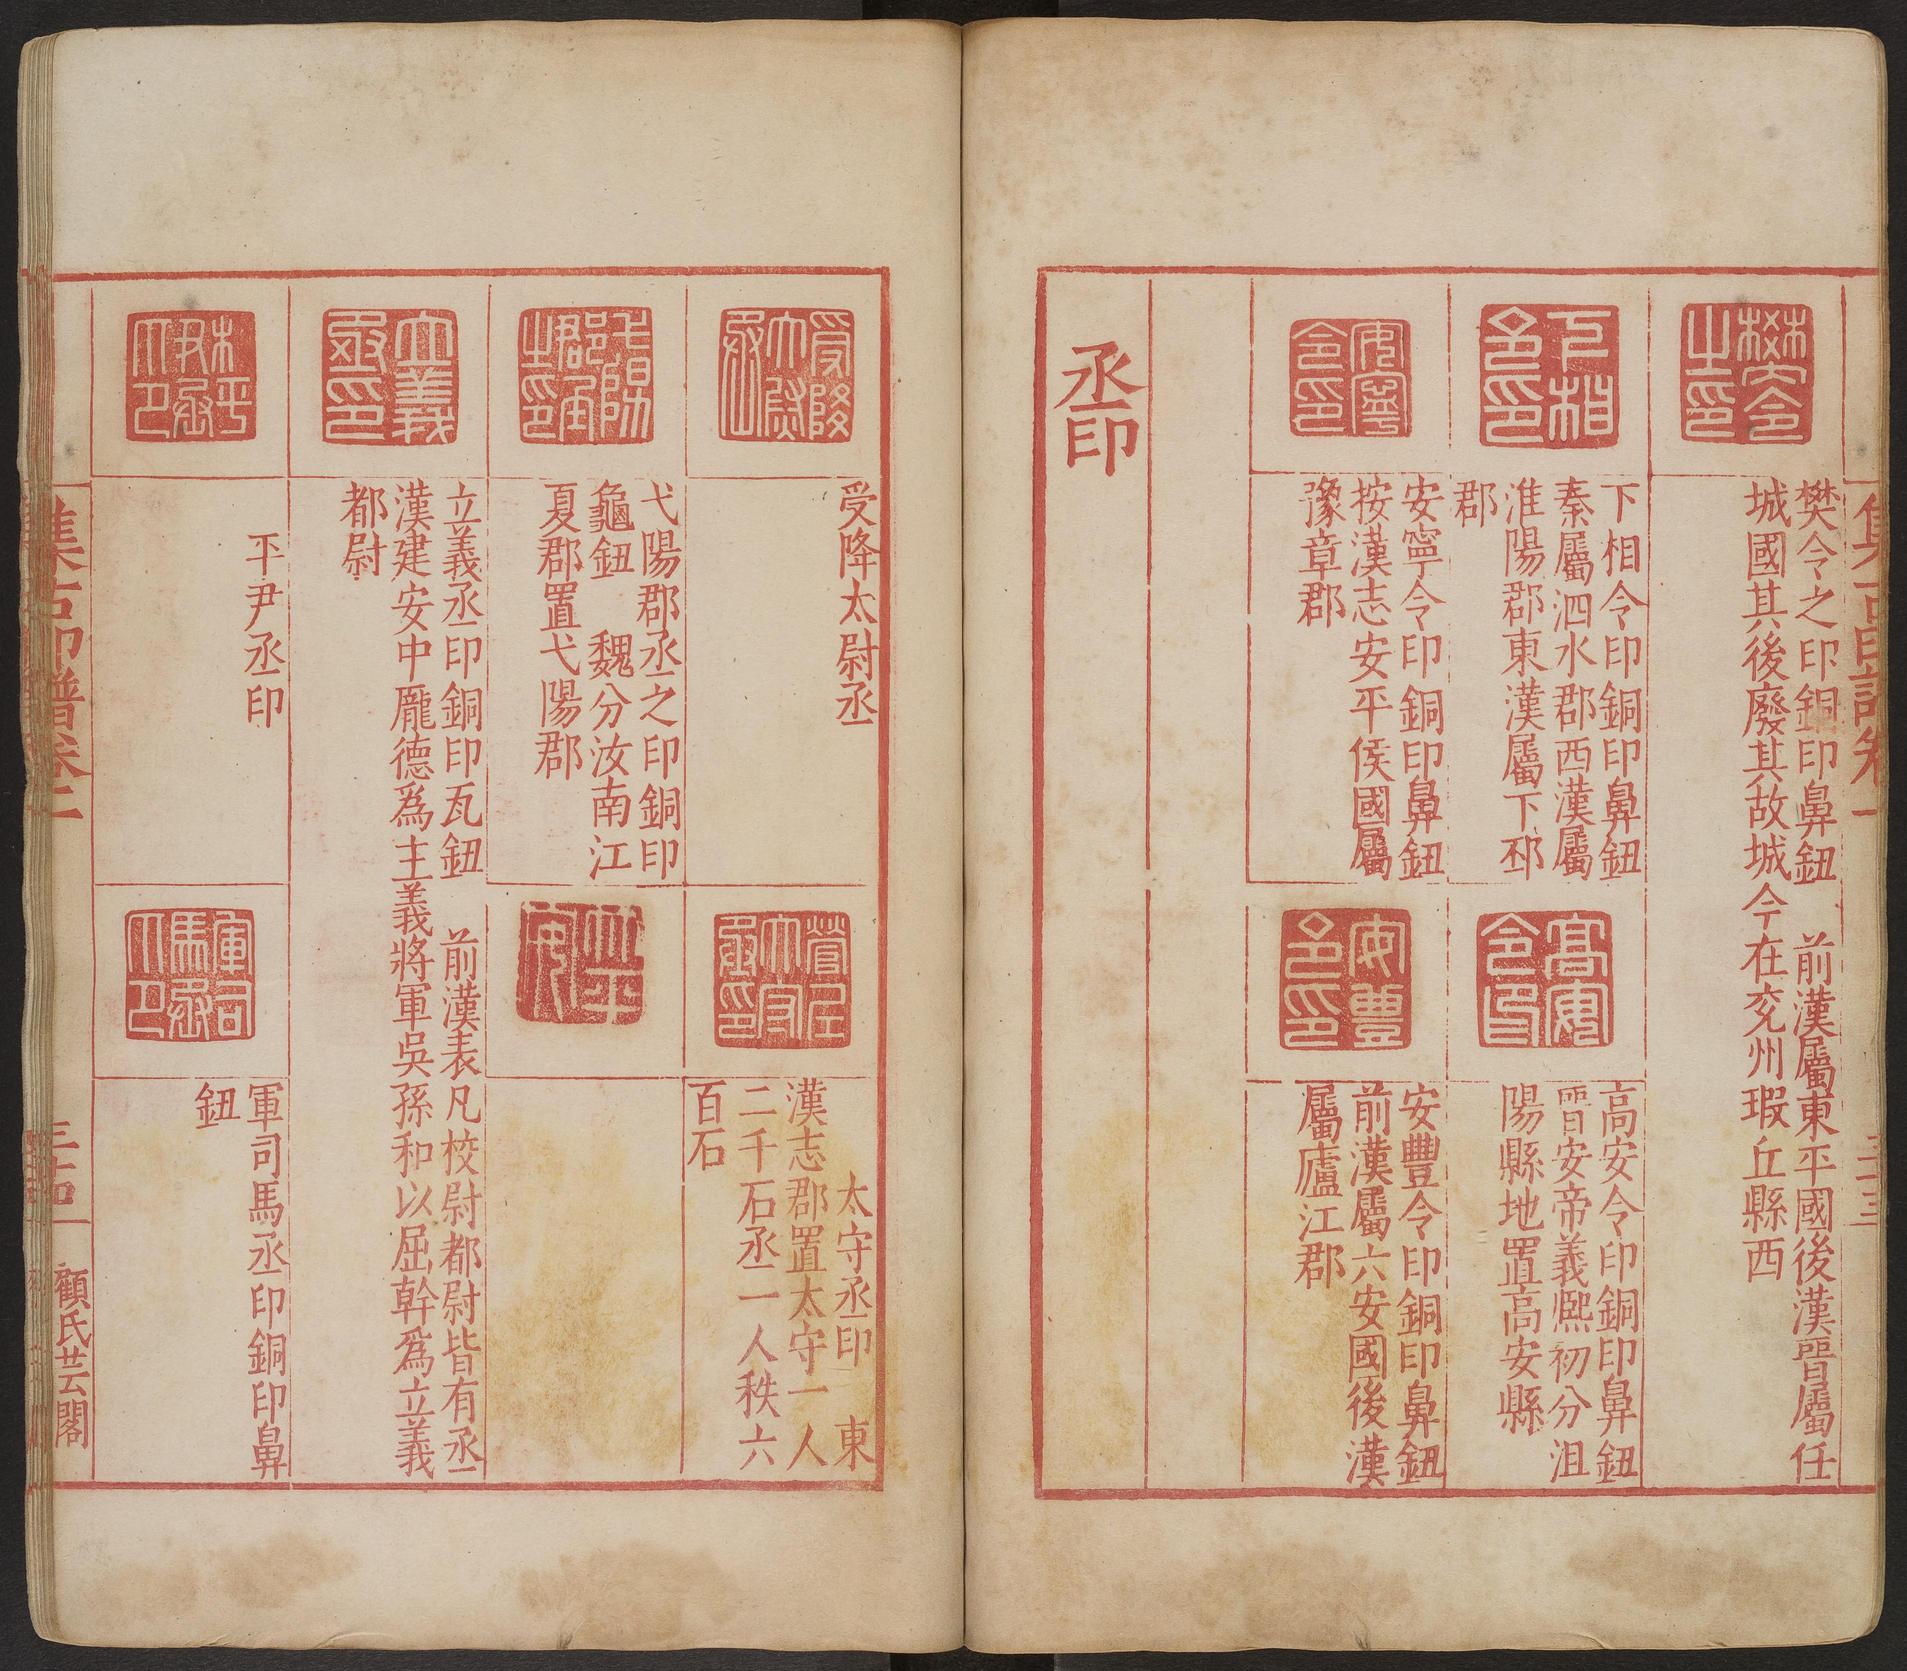 樊令之印銅印鼻鈕　前漢屬東平國後漢晉屬任
城國其後廢其故城今在兗州瑕丘縣西
下相令印銅印鼻鈕
秦屬泗水郡西漢屬
淮陽郡東漢屬下邳
郡
高安令印銅印鼻鈕
晉安帝義熙初分沮
陽縣地置高安縣
安寧令印銅印鼻鈕
按漢志安平侯國屬
豫章郡
安豐令印銅印鼻鈕
前漢屬六安國後漢
屬廬江郡
丞印
受降太尉丞
太守丞印　東
漢志郡置太守一人
二千石丞一人秩六
百石
弋陽郡丞之印銅印
龜鈕　魏分汝南江
夏郡置弋陽郡
立義丞印銅印瓦鈕　前漢表凡校尉都尉皆有丞
漢建安中龐德爲主義將軍吳孫和以屈幹爲立義
都尉
平尹丞印
軍司馬丞印銅印鼻
鈕
集古印譜卷二
顧氏芸閣